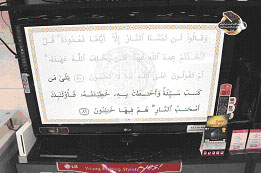 وَقَالُوا۟ لَن تَمَسَّنَا ٱلنَّارُ إِلَّآ أَيَّامًا مَّعْدُودَةً قُلْ
أَتَّخَذْتُمْ عِندَ ٱللَّهِ عَهْدًا فَلَن يُخْلِفَ ٱللَّهُ عَهْدَهُۥٓ
أَمْ تَقُولُونَ عَلَى ٱللَّهِ مَا لَا تَعْلَمُونَ ٨٠ بَلَىٰ مَن
كَسَبَ سَيِّئَةً وَأَحَٰطَتْ بِهِۦ خَطِيٓـَٔتُهُۥ فَأُو۟لَٰٓئِكَ
أَصْحَٰبُ ٱلنَّارِ هُمْ فِيهَا خَٰلِدُونَ ٨١
LG
LG
yes!